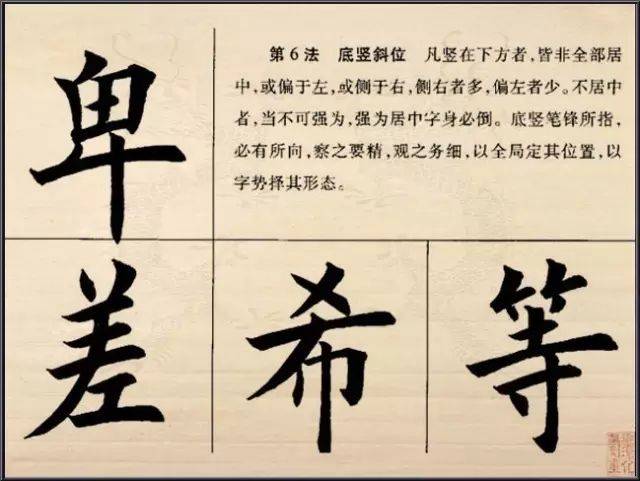 第6法 底竖斜位 凡竖在下方者,皆非全部居
中,或偏于左,或侧于右,侧右者多,偏左者少。不居中
者,当不可强为,强为居中字身必倒。底竖笔锋所指,
必有所向,察之要精,观之务细,以全局定其位置,以
字势择其形态。
卑
差 希 等